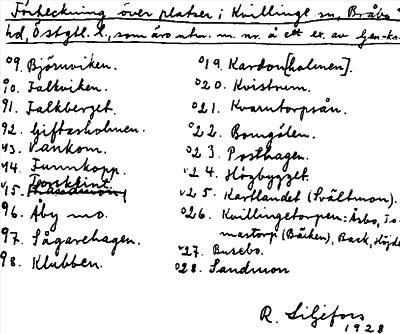 Förteckning över platser i Kvillinge sn, Bråbo
hd, Östgtl. l., som äro utm. m. nr. å ett ex. av Gen-ks.
09. Björnviken.
90. Falkviken.
91. Falkberget.
92. Giftasholmen.
93. Vänkom.
94. Funnkopp.
95. Torsklint
96. Åby mo.
97. Sågarehagen.
98. Klubben.
019. Kardon[holmen].
020. Kvistrum.
021. Kvarntorpsån.
022. Bomgölen.
023. Posthagen.
v24. Högbygget.
v25. Kartlandet (Svältmon).
026. Kvillingetorpen: Åsbo, To
mastorp (Bäcken), Back, Höjde
v27. Busebo.
028. Sandmon
R. Liljefors
1928